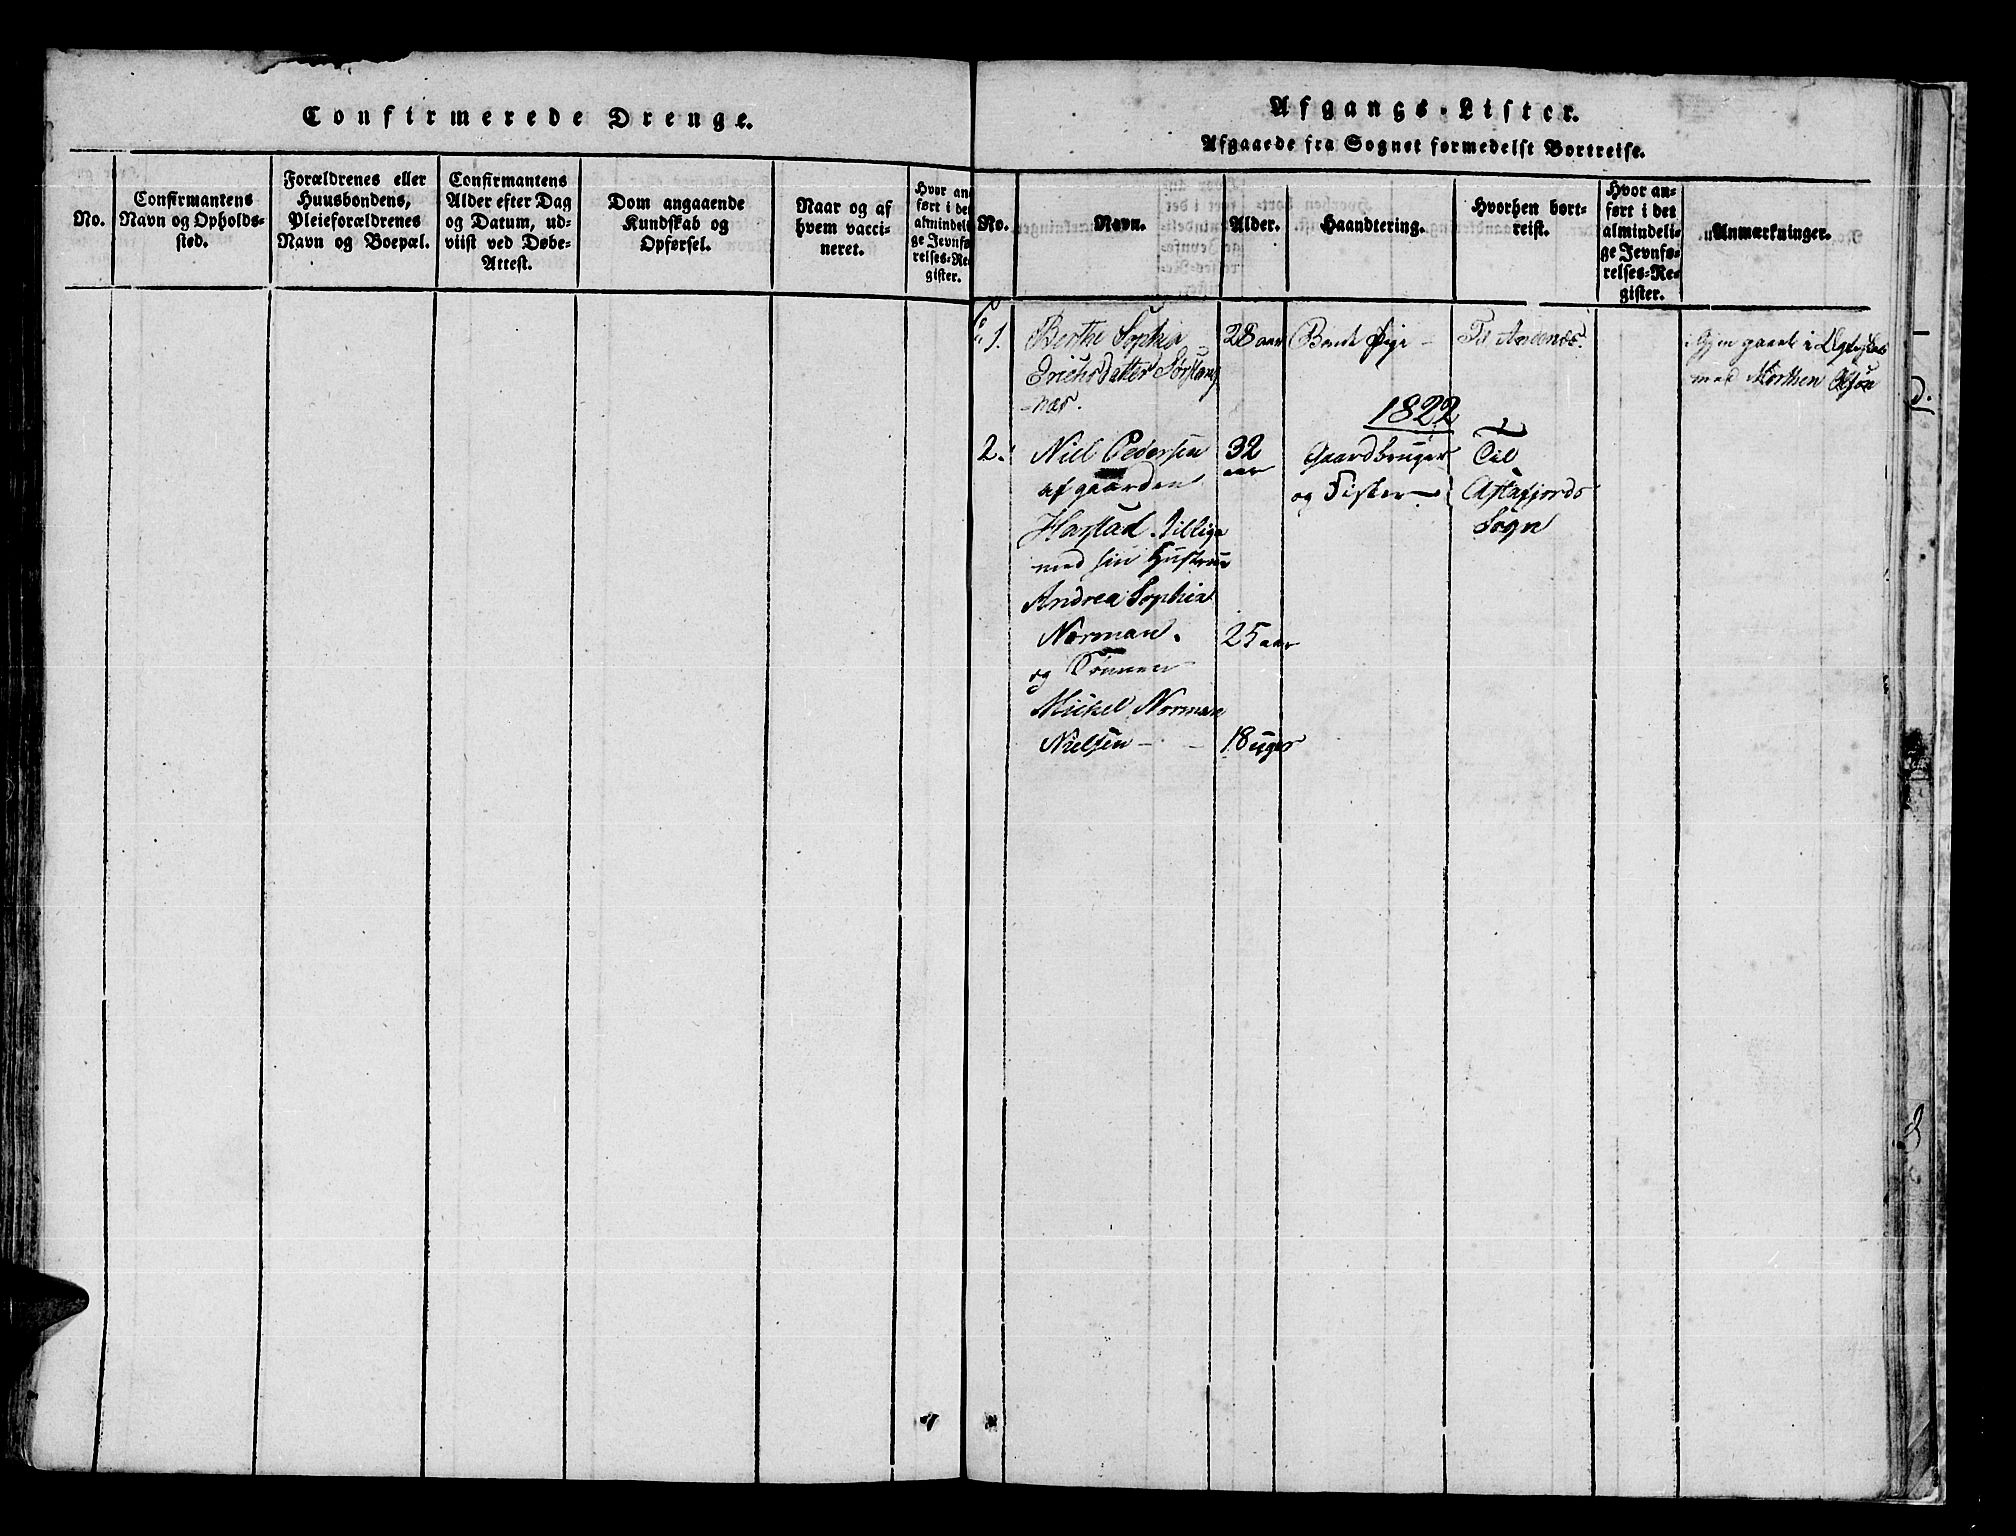 Confirmerede Drenge.
No.
Confirmantens
Navn og Opholds-
sted.
Forældrenes eller
Huusbondens,
Pleieforældrenes
Navn og Boepæl.
Confirmantens
Alder efter Dag
og Datum, ud-
viist ved Døbe-
Attest.
Dom angaaende
Kundskab og
Opførsel.
Naar og af
hvem vacci-
neret.
Hvor an
ført i det
almindeli
ge Jevnfø
relses-Re
gister.
Afgangs-Lister.
Afgaaede fra Sognet formedelst Bortreise.
No.
Navn.
Alder.
Haandtering.
Hvorhen bort-
reist.
Hvor an-
ført i det
almindeli-
ge Jevnfø-
relses-Re-
gister.
Anmærkninger.
1.
Berthe Sophia
Erichsdatter
28 aar
Pige
med Morthen Olsen
1822
2.
Niel Pedersen
af gaarden
Harstad tillige
med sin Hustrue
Andrea Sophia
Norman.
og Sønnen
Mickel Norman
Nielsen
32
aar
25 aar
18 uger
Gaardbruger
og Fisker
Til
Astafjords
Sogn